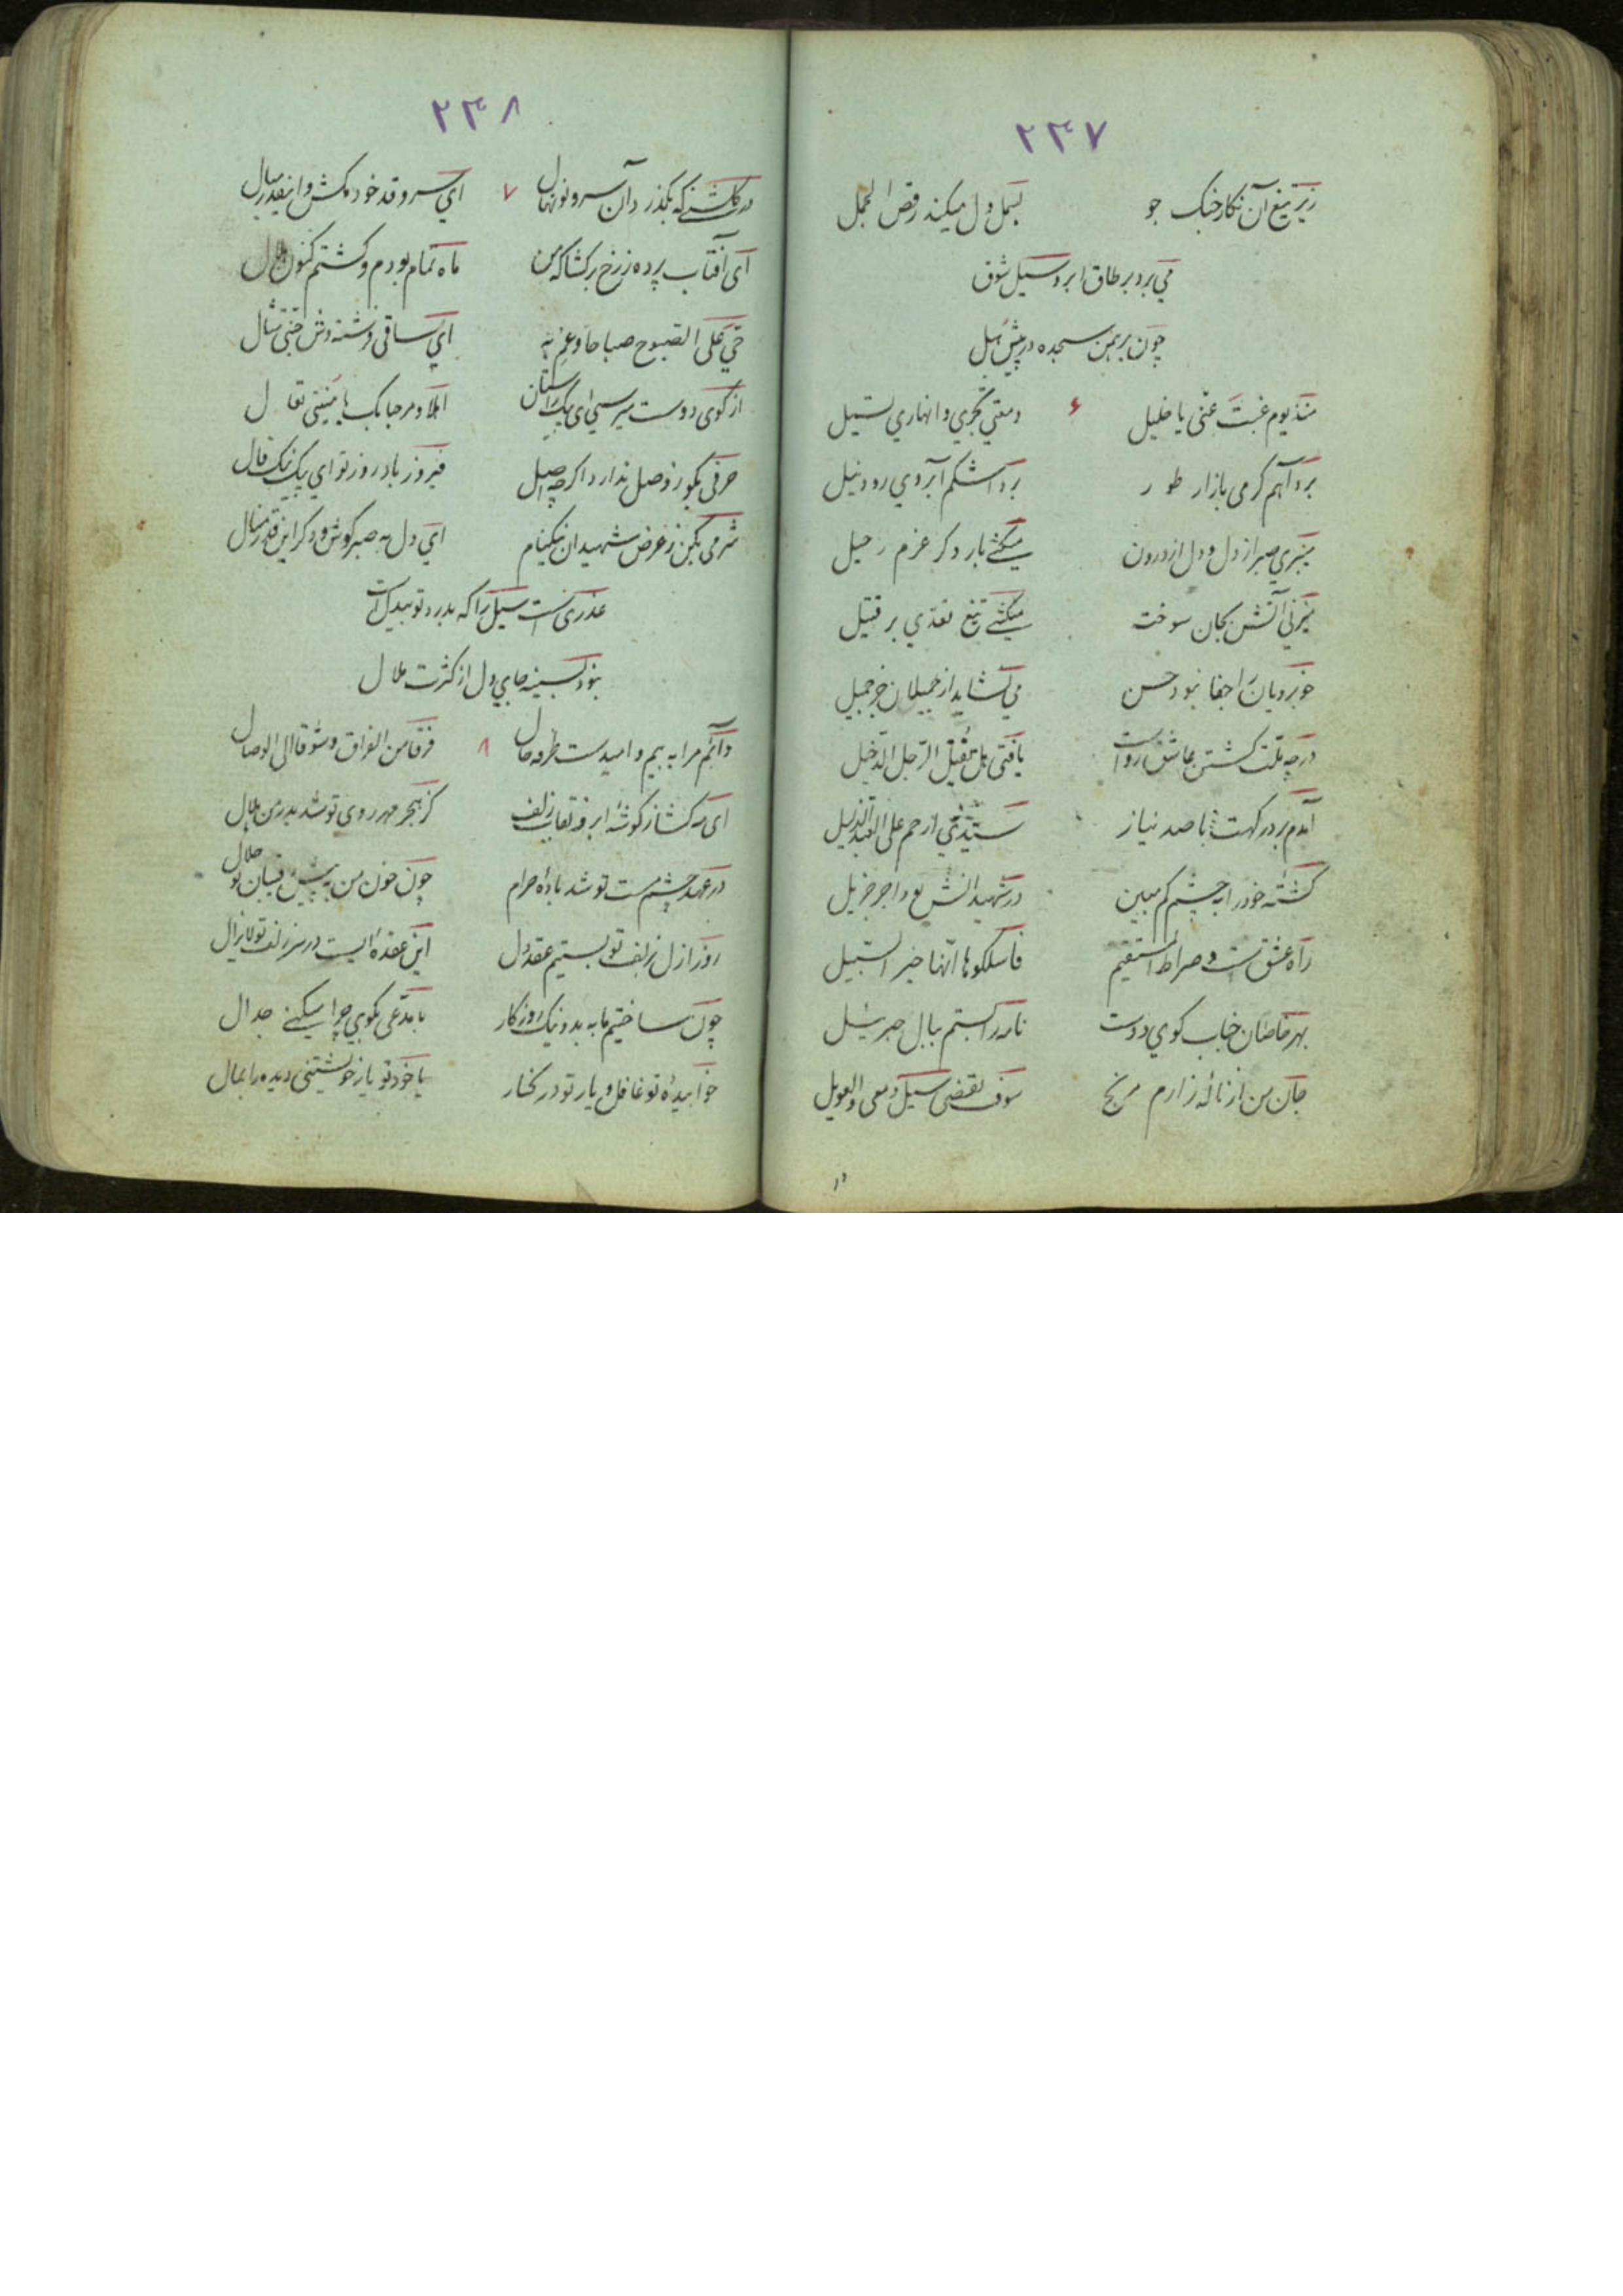 ۲۳۷
زیر تیغ آن نگار جنگ جو بسمل دل میکند رقص الجمل
می برد بر طاق ابرو سیل شوق
چون برهمن سجده در پیش هبل
۶
منذ یوم غبت عنی یا خلیل دمعتی تجری و انهاری تسیل
برد آهم گرمی بازار طور برد اشکم آبروی رود نیل
میبری صبر از دل و دل از درون میکنی بار دگر عزم رحیل
میزنی آتش بجان سوخته میکشی تیغ تعدی بر قتیل
خوبرویان را جفا نبود حسن می نشاید از جمیلان جز جمیل
در چه ملت کشتن عاشق رواست یا فتی هل تقتل الرجل الدخیل
آمدم بر درگهت با صد نیاز سیدی ارحم علی العبد الذلیل
کشته خود را بچشم کم مبین در شهید انش بود اجر جزیل
راه عشق است و صراط المستقیم فاسلکوها انها خیر السبیل
بهر خاصان جناب کوی دوست نامه را بستم ببال جبرئیل
جان من از ناله زارم مرنج سوف تقضی سیل دمعی و العویل
۲۳۸
در گلشنی که بگذرد آن سرو نونهال ۷ ای سرو قد خود مکش و اینقدر مبال
ای آفتاب پرده ز رخ برگشا که من ماه تمام بودم و گشتم کنون هلال
حی علی الصبوح صباحا و عم به ای ساقی فرشته وش
از کوی دوست میرسی ای پیک راستان اهلا و مرحبا بک یا منیتی تعال
حرفی بگو ز وصل ندارد اگر چه اصل فیروز باد روز تو ای پیک نیک فال
شرمی بکن ز عرض شهیدان نیکنام ای دل به صبر کوش و دگر این قدر منال
عذری است سیل را که بدرد تو بیدل است
نبود بسینه جای دل از کثرت ملال
دائم مرا به بیم و امید است طرفه حال ۸ فرقا من الفراق و شوقا الی الوصال
ای مه گشا ز گوشه ابرو نقاب زلف کز هجر مهر روی تو شد بدر من هلال
در عهد چشم مست تو شد باده حرام چون خون من به پیش رقیبان تو حلال
روز ازل بزلف تو بستیم عقد دل این عقده ایست در سر زلف تو لایزال
چون ساختیم ما به بد و نیک روزگار با مدعی بگوی چرا میکنی جدال
خوابیده تو غافل و یار تو در کنار با خود تو یار خویشتنی دیده را بمال